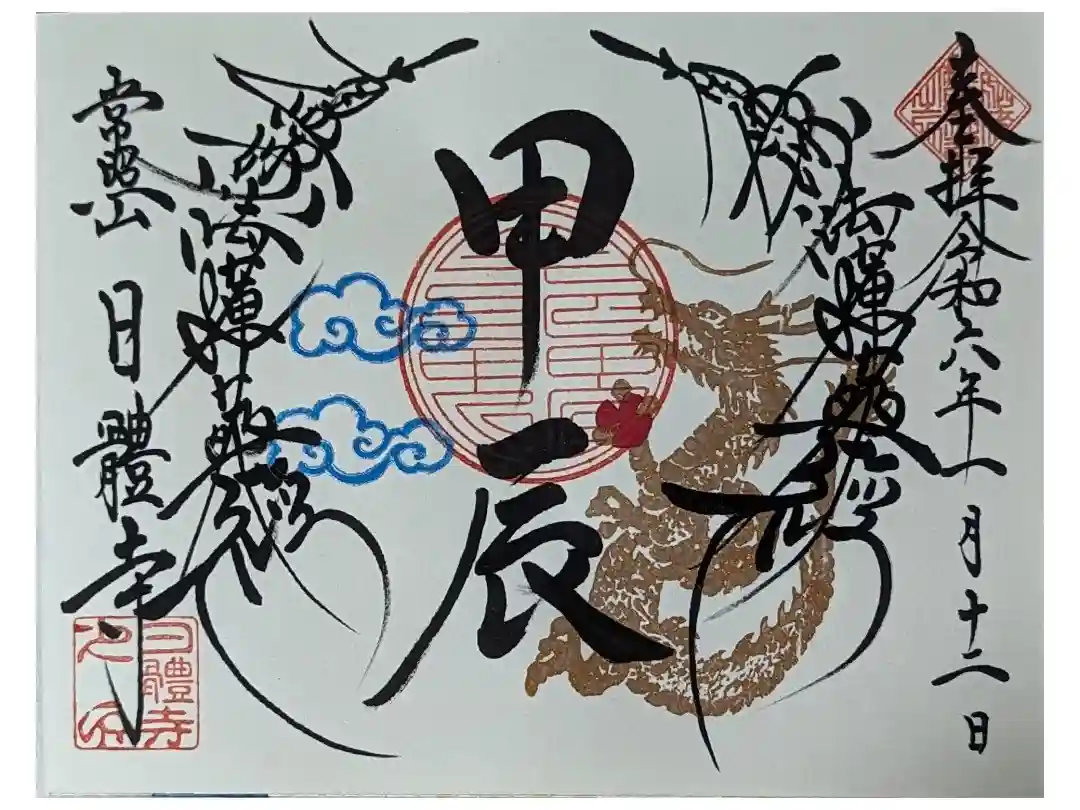 奉拝 令和六年一月十二日
南無妙法蓮華経
甲辰
南無妙法蓮華経
常照山 日體寺
日體寺
之印